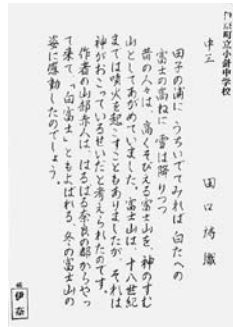 町立小針中学校
中三 田口詩織
田子の浦に うちいでてみれば 白たへの
富士の高ねに 雪は降りつつ
昔の人々は、高くそびえる富士山を、神のすむ
山としてあがめていました。富士山は、十八世紀
までは噴火を起こすこともありましたが、それは
神がおこっているせいだと考えられたのです。
作者の山部赤人は、はるばる奈良の都からやっ
て来て、「白富士」ともよばれる、冬の富士山の
姿に感動したのでしょう。
伊奈